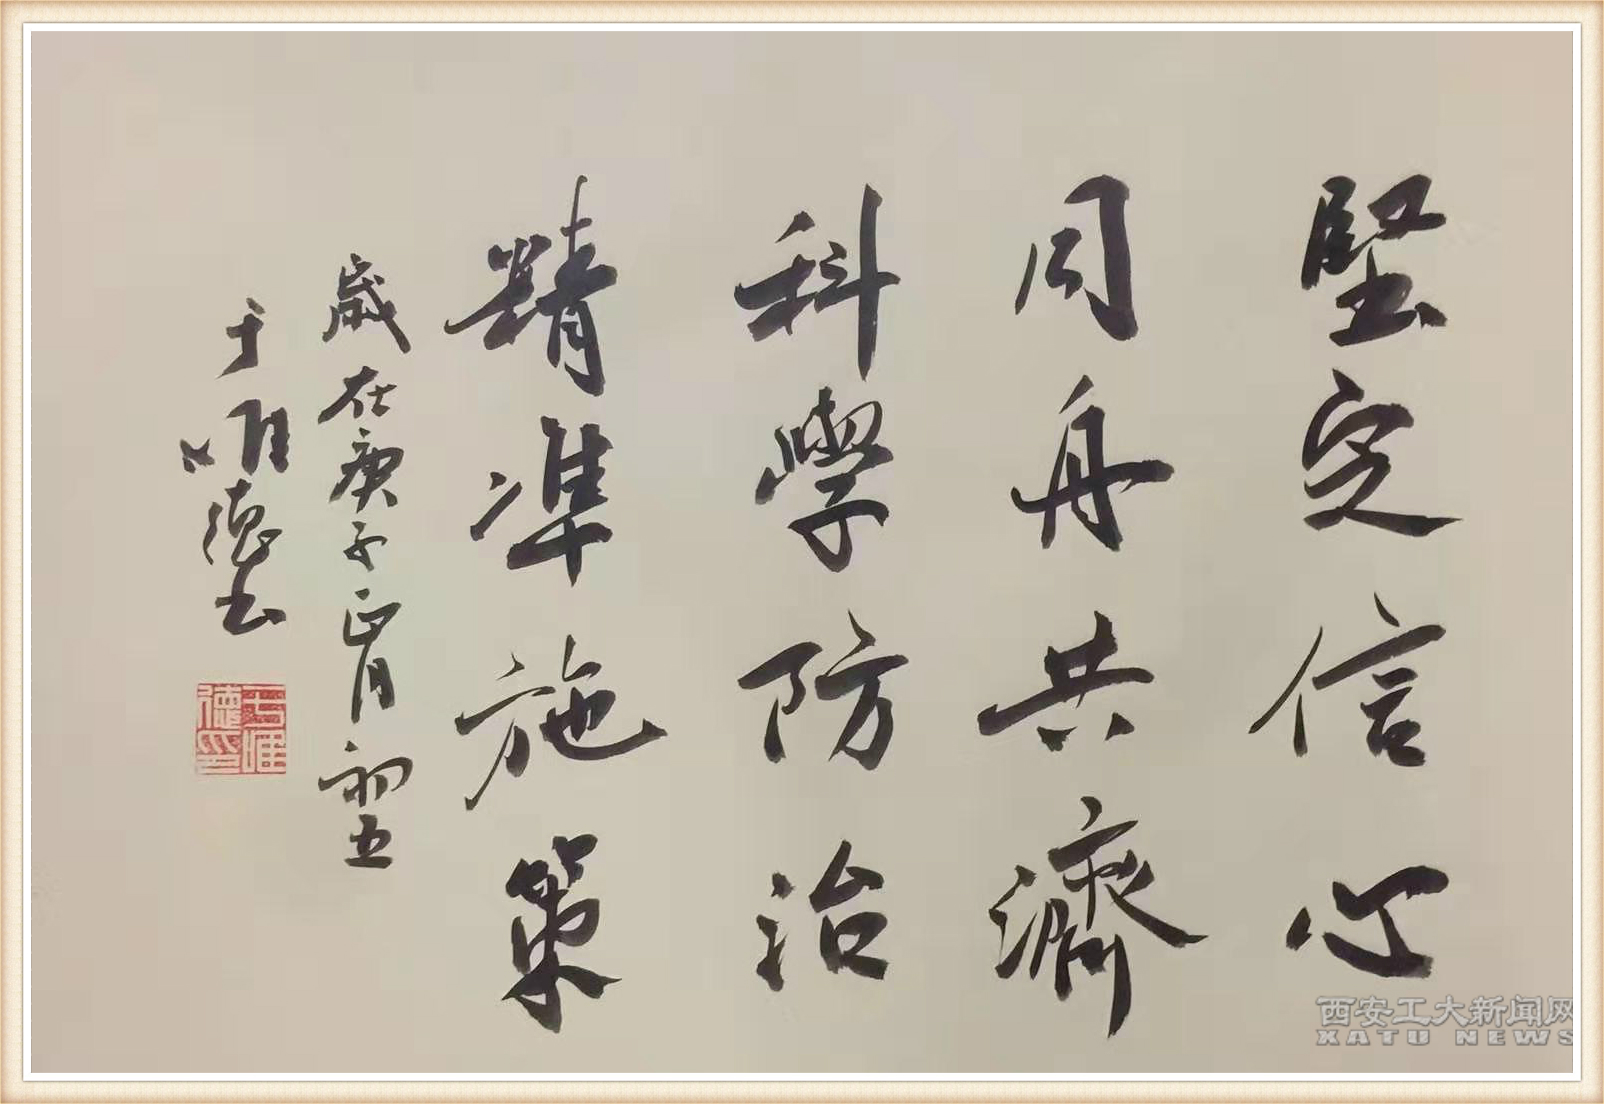 堅定信心
同舟共濟
科學防治
精準施策
歲在庚子正月初五
于唯德书
于唯德印
西安工大新闻网
XATU NEWS